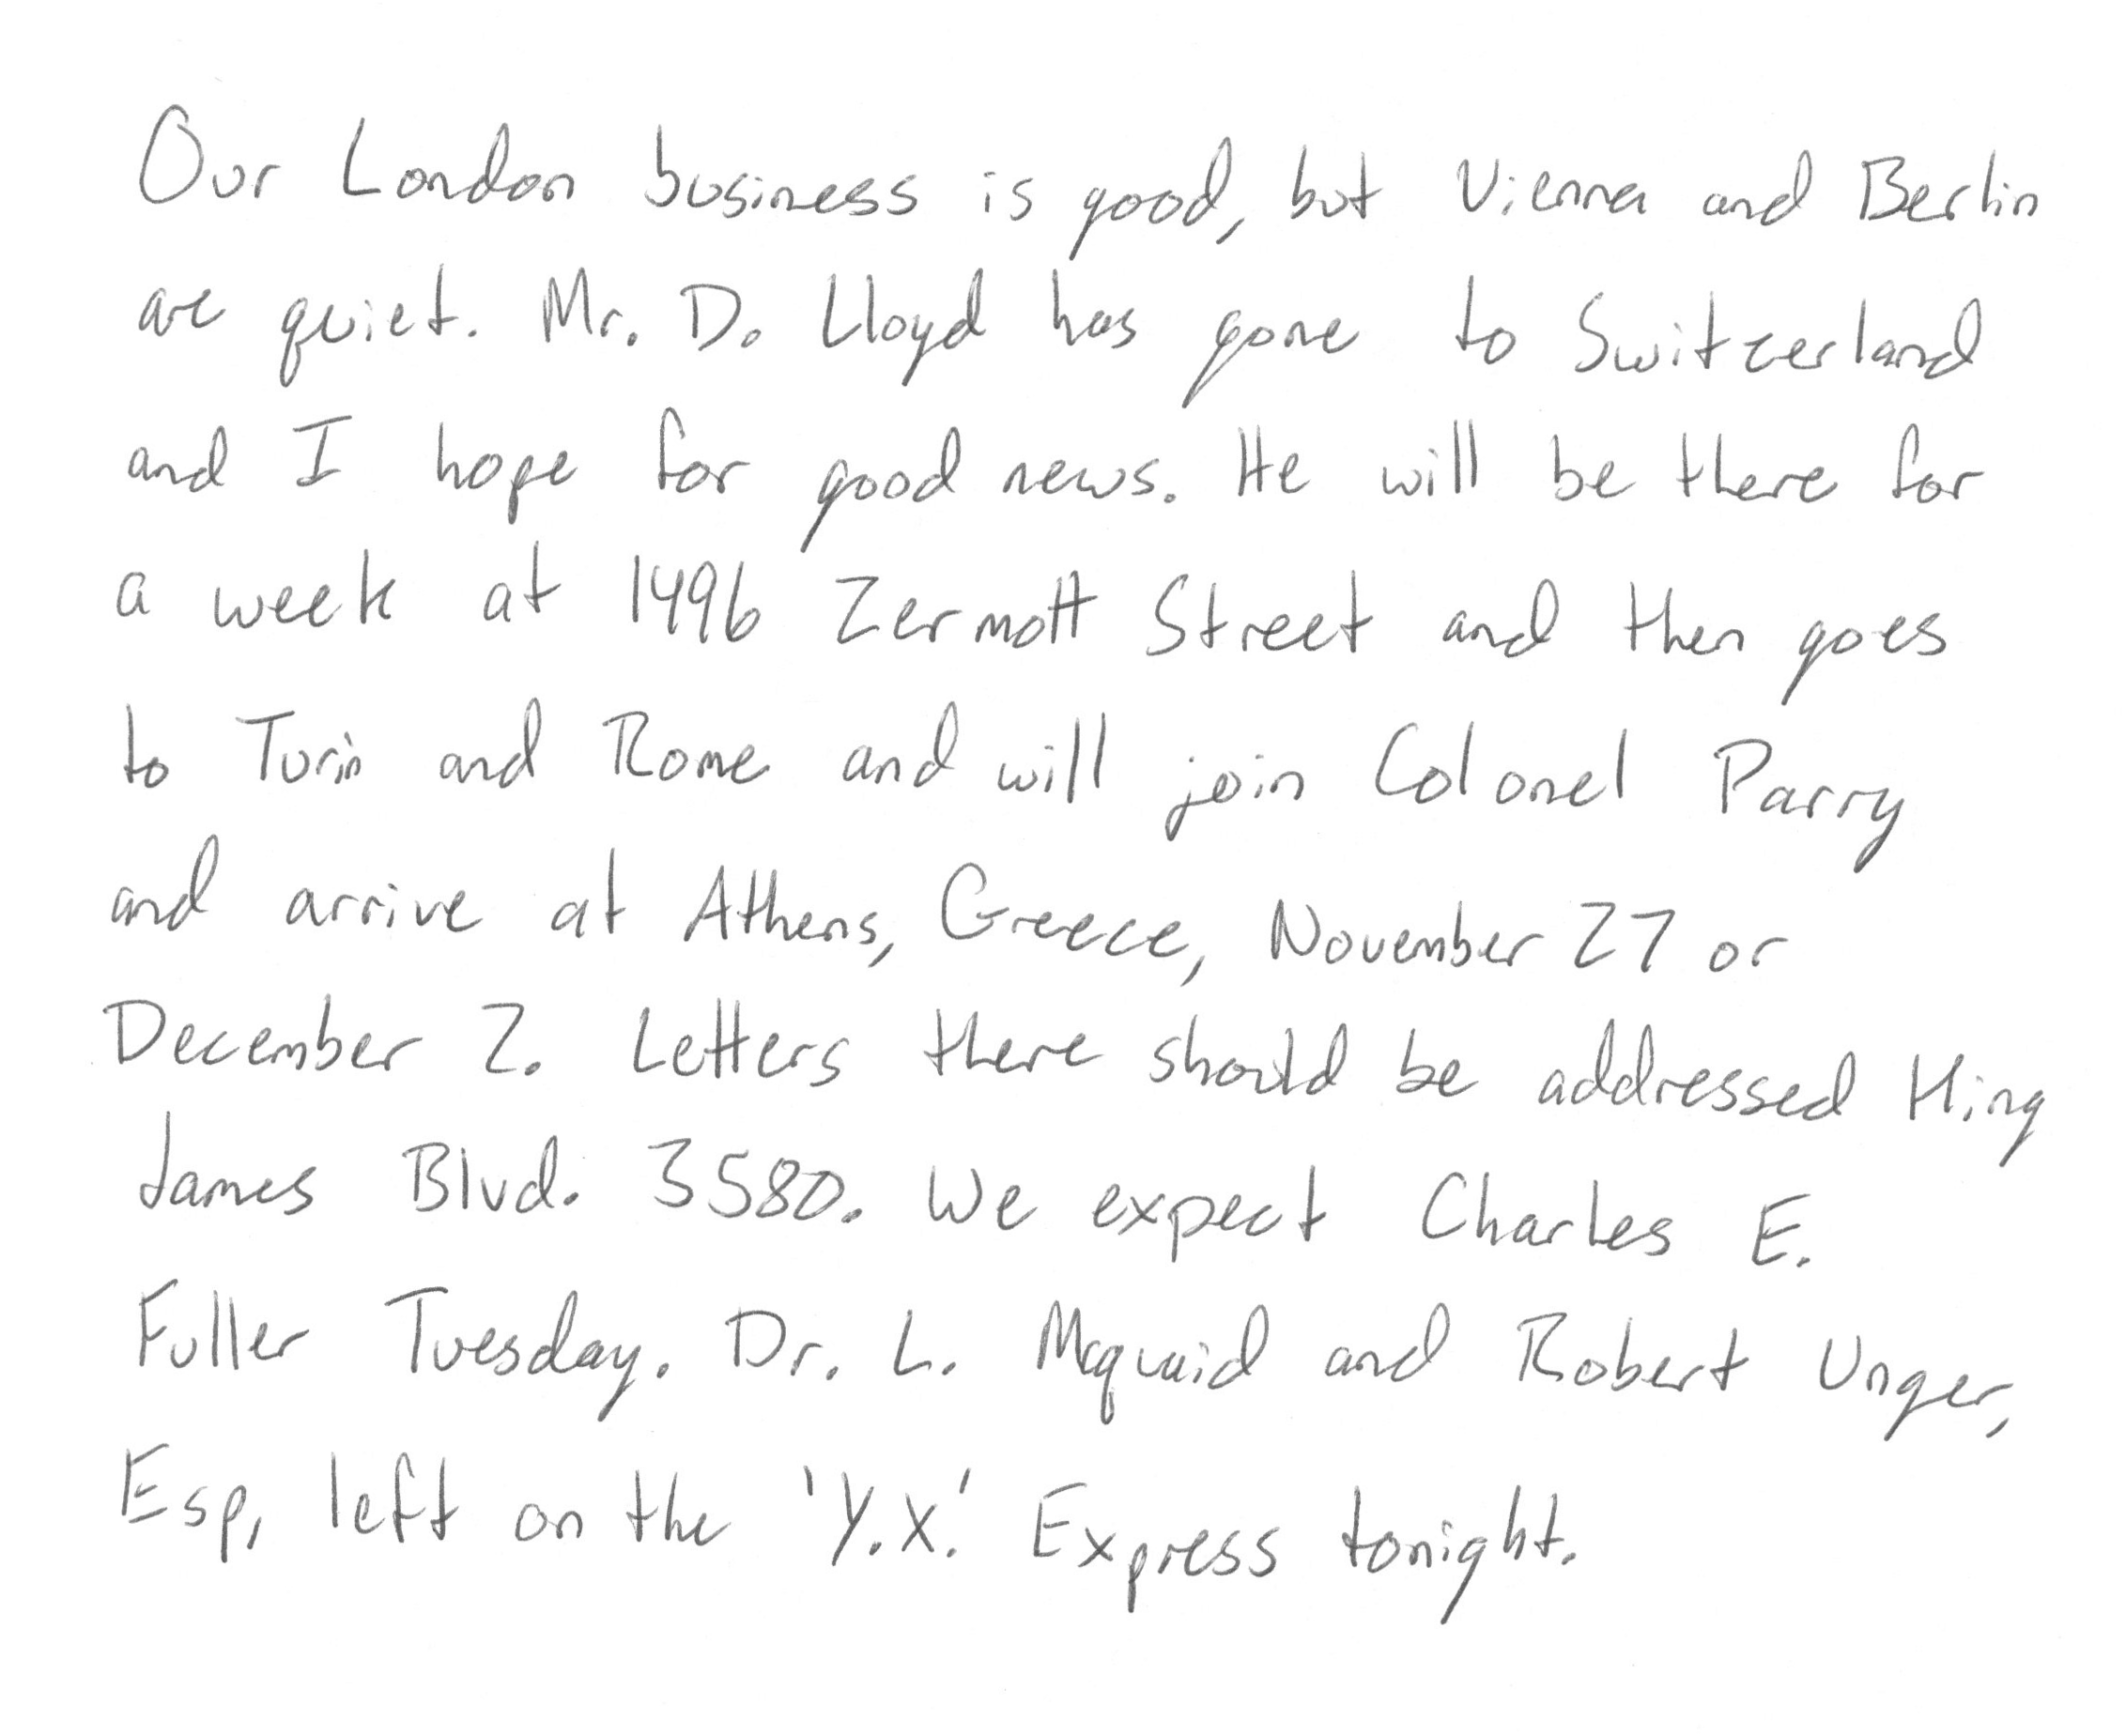 Our London business is good, but Vienna and Berlin
are quiet. Mr. D. Lloyd has gone to Switzerland
and I hope for good news. He will be there for
a week at 1496 Zermott Street and then goes
to Turin and Rome and will join Colonel Parry
and arrive at Athens, Greece, November 27 or
December 2. Letters there should be addressed King
James Blvd. 3580. We expect Charles E.
Fuller Tuesday. Dr. L. Mcquaid and Robert Unger,
Esp, left on the 'Y.X.' Express tonight.